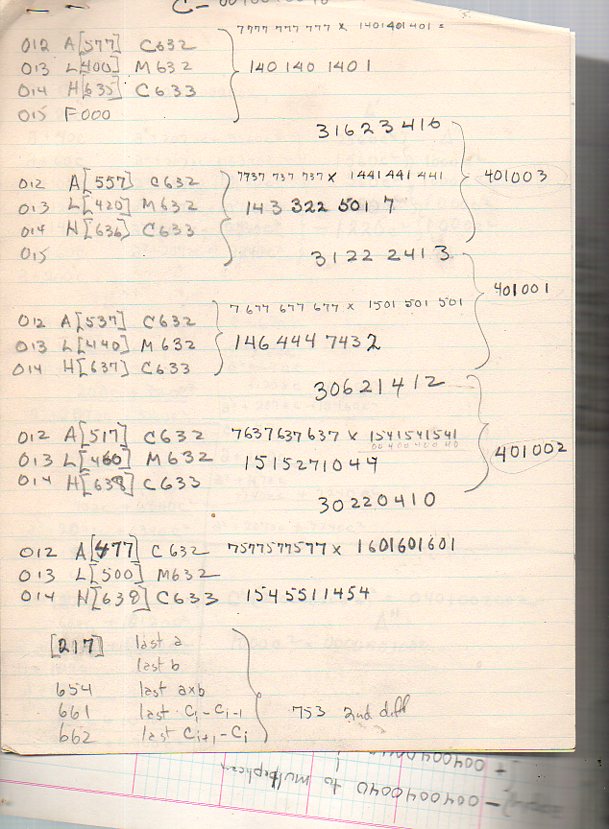 7777 777 777 x 1401401401 =
012 A[577] C632
013 L[400] M632 140 140 1401
014 H[635] C633
015 F000
31623416
012 A[557] C632 7737 737 737 x 1441 441 441 401003
013 L[420] M632 143 322 5017
014 H[636] C633
015 31222413
401001
7677 677 677 x 1501 501 501
012 A[537] C632
013 L[440] M632 146 444 7432
014 H[637] C633
30621412
012 A[517] C632 7637637637 x 1541541541
401002
013 L[460] M632 1515271044
014 H[638] C633
30220410
012 A[477] C632 7577577577 x 1601601601
013 L[500] M632
014 H[638] C633 1545511454
[217] last a
last b
654 last axb
661 last Ci-Ci-1 753 2nd diff
662 last Ci+1-Ci
004004004
0040040040 to multiplicer